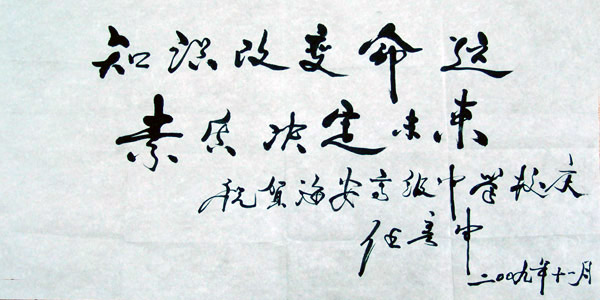 知识改变命运
素质决定未来
祝贺海安高级中学校庆
任彦申
二00九年十一月